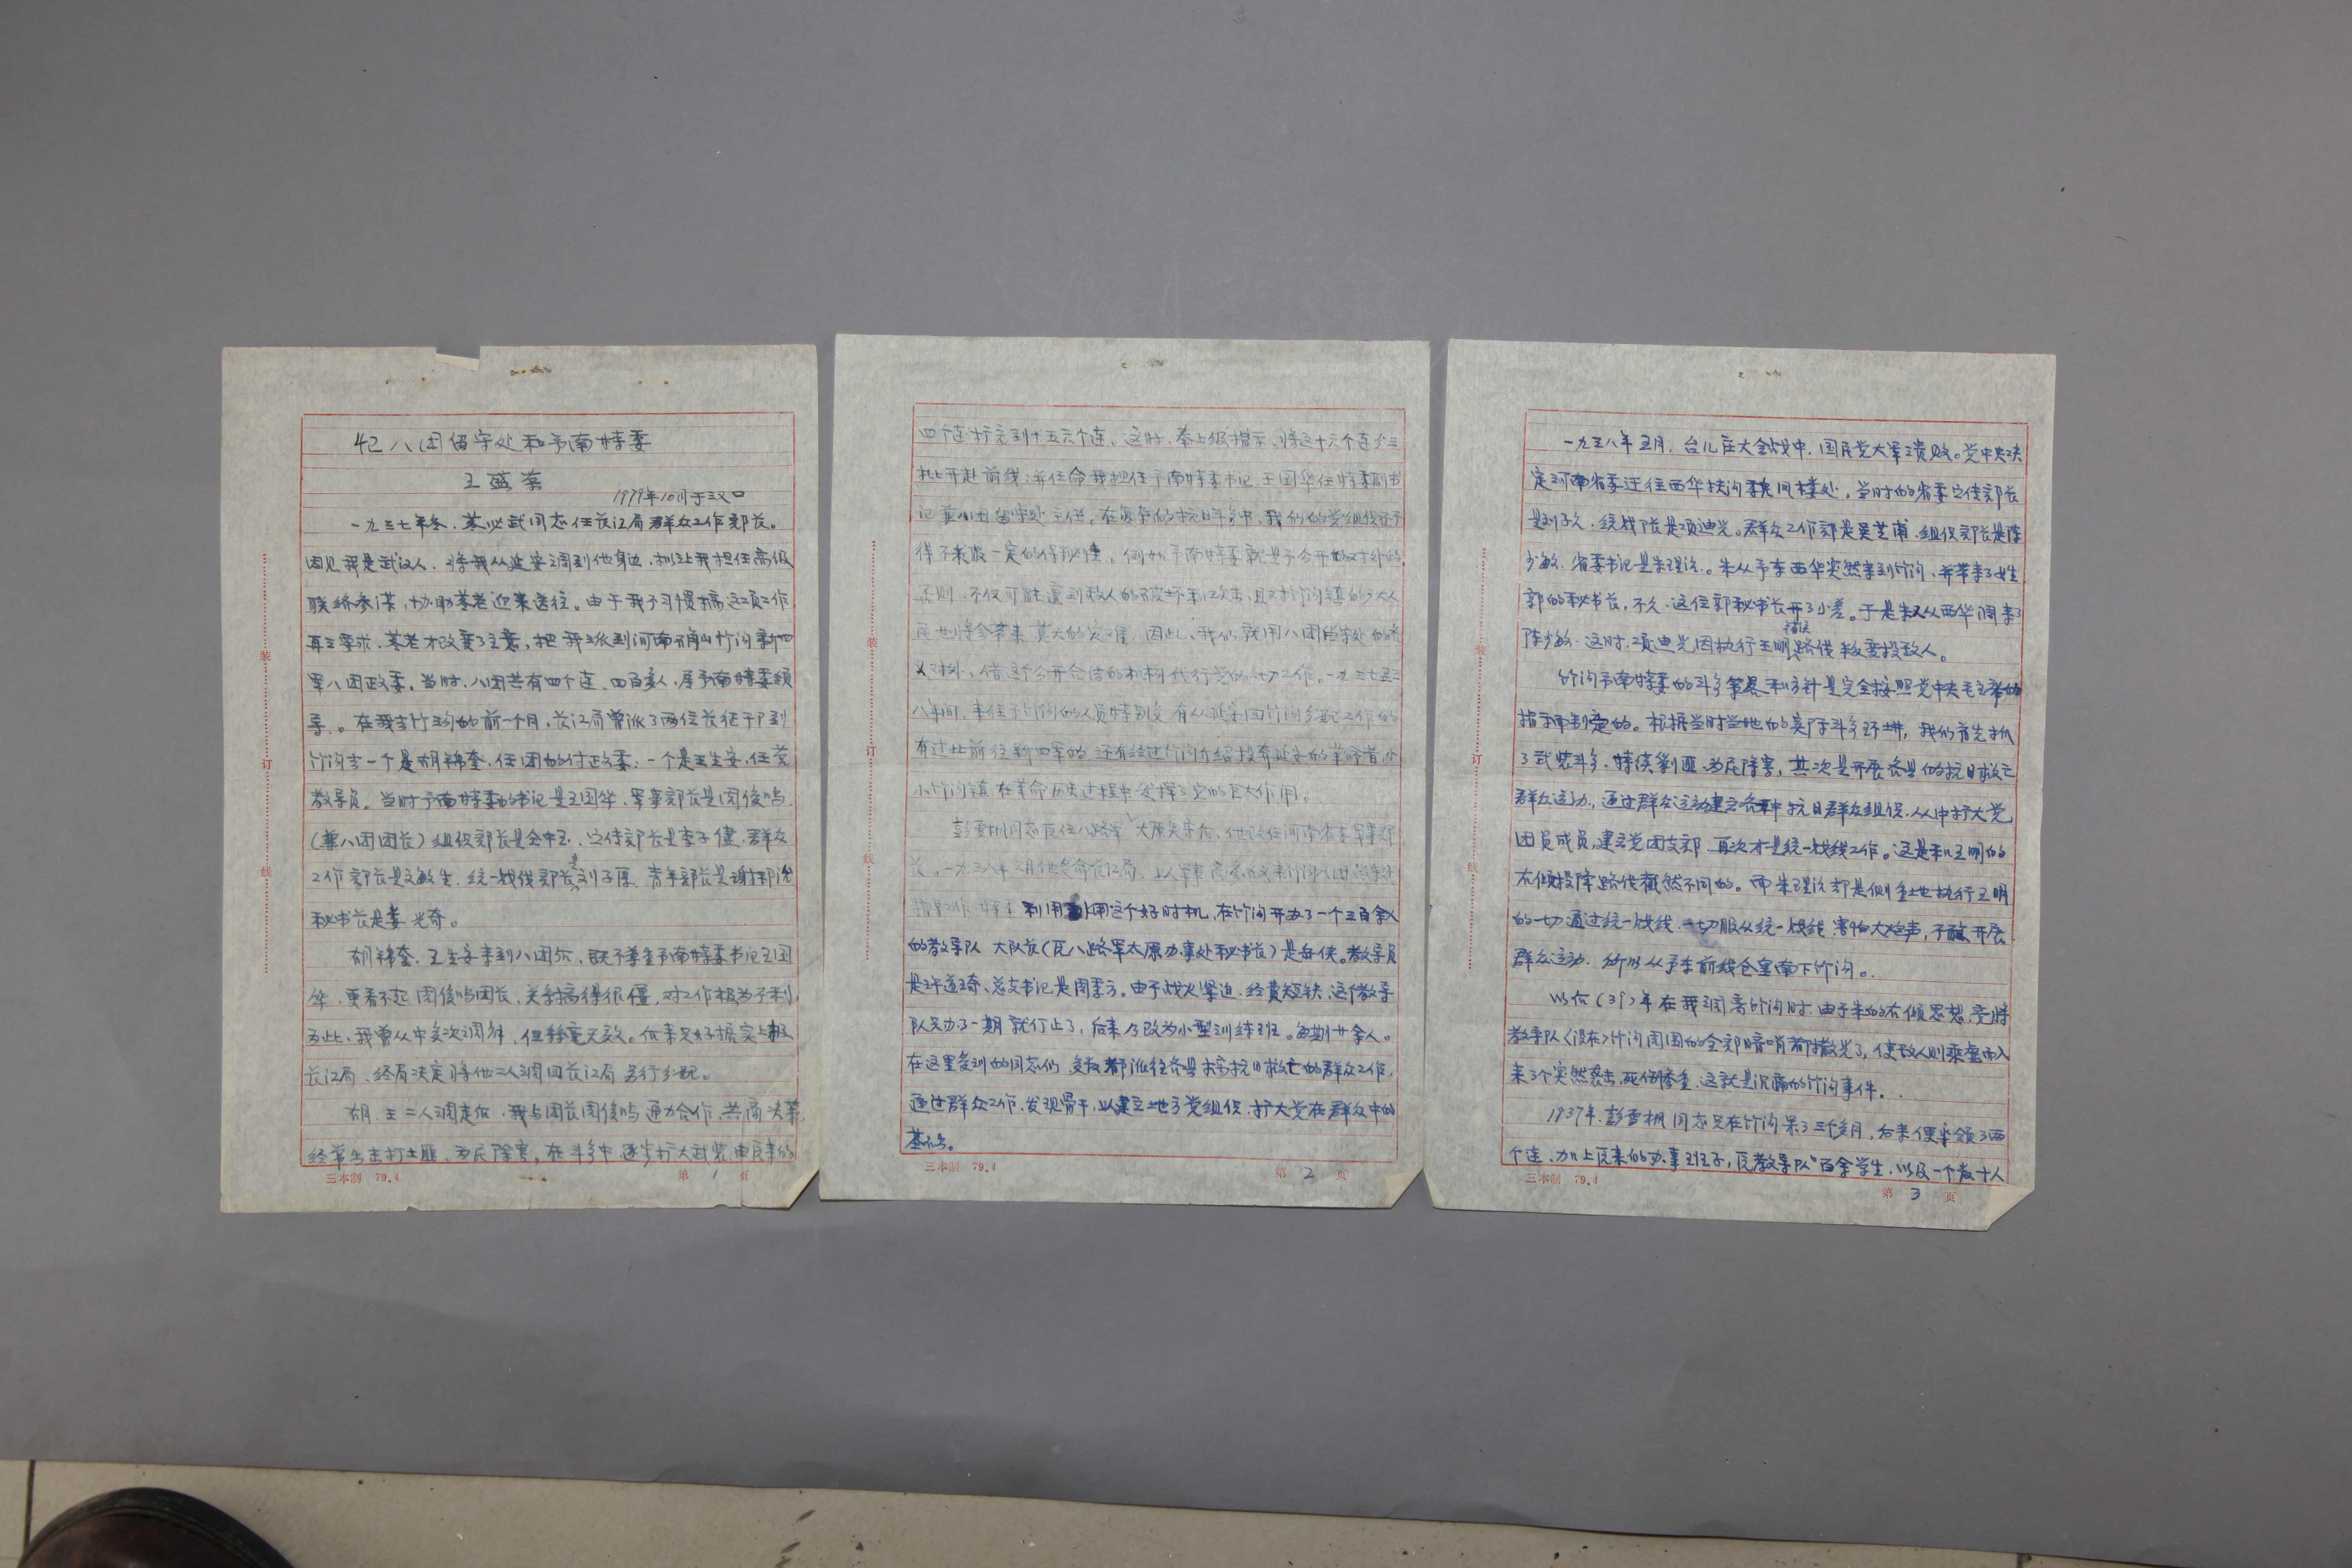 记八团留守处和予南特委
王盛荣
1979年10月于汉口
一九三七年冬,董必武同志任长江局群众工作部长。
因见我是武汉人,将我从延安调到他身边,拟让我担任高级
联络参谋,协助董老迎来送往。由于我不习惯搞这项工作
再三要求,董老才改变了主意,把我派到河南确山竹沟新四
军八团政委。当时,八团共有四个连、四百多人,属予南特委领
导。在我去竹沟的前一个月,长江局曾派了两位长征干部到
竹沟去一个是胡锦奎,任团的付政委,一个是王生安,任党
教导员。当时予南特委的书记是王国华,军事部长是周俊鸣
(兼八团团长)组织部长是仝中玉,宣传部长是李子健,群众
工作部长是文敏生,统一战线部长是刘子厚,青年部长是谢邦治
秘书长是娄光奇。
胡锦奎、王生安来到八团后,既不尊重予南特委书记王国
华,更看不起周俊鸣团长,关系搞得很僵,对工作极为不利
为此,我曾从中多次调解,但丝毫无效。后来只好据实上报
长江局,经局决定将他二人调回长江局另行分配。
胡、王二人调走后,我与团长周俊鸣通力合作,共商决策,
经常出击打土匪、为民除害,在斗争中逐步扩大武装,由原来的
三本制 79.4
第 1 页
四个连扩充到十五六个连。这时,奉上级指示,将这十六个连分三
批开赴前线;并任命我担任予南特委书记,王国华任特委副书
记兼八团留守处主任。在复杂的抗日斗争中,我们的党组织还不
得不采取一定的保秘性。例如予南特委就是不公开的对外的。
否则,不仅可能遭到敌人的破坏和攻击,且对竹沟镇的广大人
民也将会带来莫大的灾难,因此,我们就用八团留守处的名
义对外,借这个公开合法的机构代行党的一切工作。一九三七至三
八年间,来往于竹沟的人员特别多,有从延安回竹沟分配工作的
有过此前往新四军的,还有经过竹沟介绍投奔延安的革命者,小
小竹沟镇,在革命历史过程中发挥了它的巨大作用。
彭雪枫同志原任八路军,太原失守后,他改任河南省委军事部
长,一九三八年二月他奉命长江局,以军事高参名义来竹沟八团留守处
指导工作,特委利用这个好时机,在竹沟开办了一个三百余人
的教导队,大队长(原八路军太原办事处秘书长)是岳侠。教导员
是许道琦、总支书记是周季方。由于战火紧迫,经费短缺,这个教导
队只办了一期就停止了,后来乃改为小型训练班。每期廿余人。
在这里受训的同志们,多数都派往各县搞抗日救亡的群众工作,
通过群众工作,发现骨干,以建立地方党组织,扩大党在群众中的
基础。
三本制 79.4
第 2 页
一九三八年五月,台儿庄大会战中,国民党大军溃败。党中央决
定河南省委迁往西华扶沟委凤楼处,当时的省委宣传部长
是刘子久,统战部长是项迪光。群众工作部是吴芝甫,组织部长是陈
少敏,省委书记是朱理治。朱从予东西华突然来到竹沟,并带来了姓
郭的秘书长,不久,这位郭秘书长开了小差。于是朱又从西华调来了
陈少敏。这时,项迪光因执行王明错误路线叛变投敌人。
竹沟予南特委的斗争策略和方针是完全按照党中央毛主席的
指示而制定的。根据当时当地的实际斗争环境,我们首先抓
了武装斗争,持续剿匪,为民除害,其次是开展各县的抗日救亡
群众运动,通过群众运动建立各种抗日群众组织,从中扩大党
团员成员,建立党团支部,再次才是统一战线工作。这是和王明的
右倾投降路线截然不同的。而朱理治却是侧重地执行王明
的一切通过统一战线,一切服从统一战线,害怕大炮声,不敢开展
群众运动,所以从予东前线仓皇南下竹沟。
以后(39)年在我调离竹沟时,由于朱的右倾思想,竟将
教导队(设在)竹沟周围的全部暗哨都撤光了,使敌人则乘虚而入
来了个突然袭击,死伤惨重,这就是沉痛的竹沟事件。
1937年,彭雪枫同志只在竹沟呆了三个多月,后来便率领了两
个连,加上原来的办事班子,原教导队百余学生,以及一个数十人
三本制 79.4
第 3 页
装
订
线
装
订
线
装
订
线